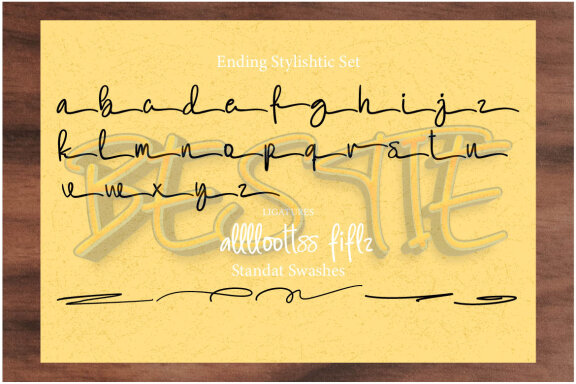 Ending Stylishtic Set
a b a d e f g h i j z
k l m n o p q r s t u
v w x y z
BESTIE
LIGATURES
alllloottss fiflz
Standat Swashes